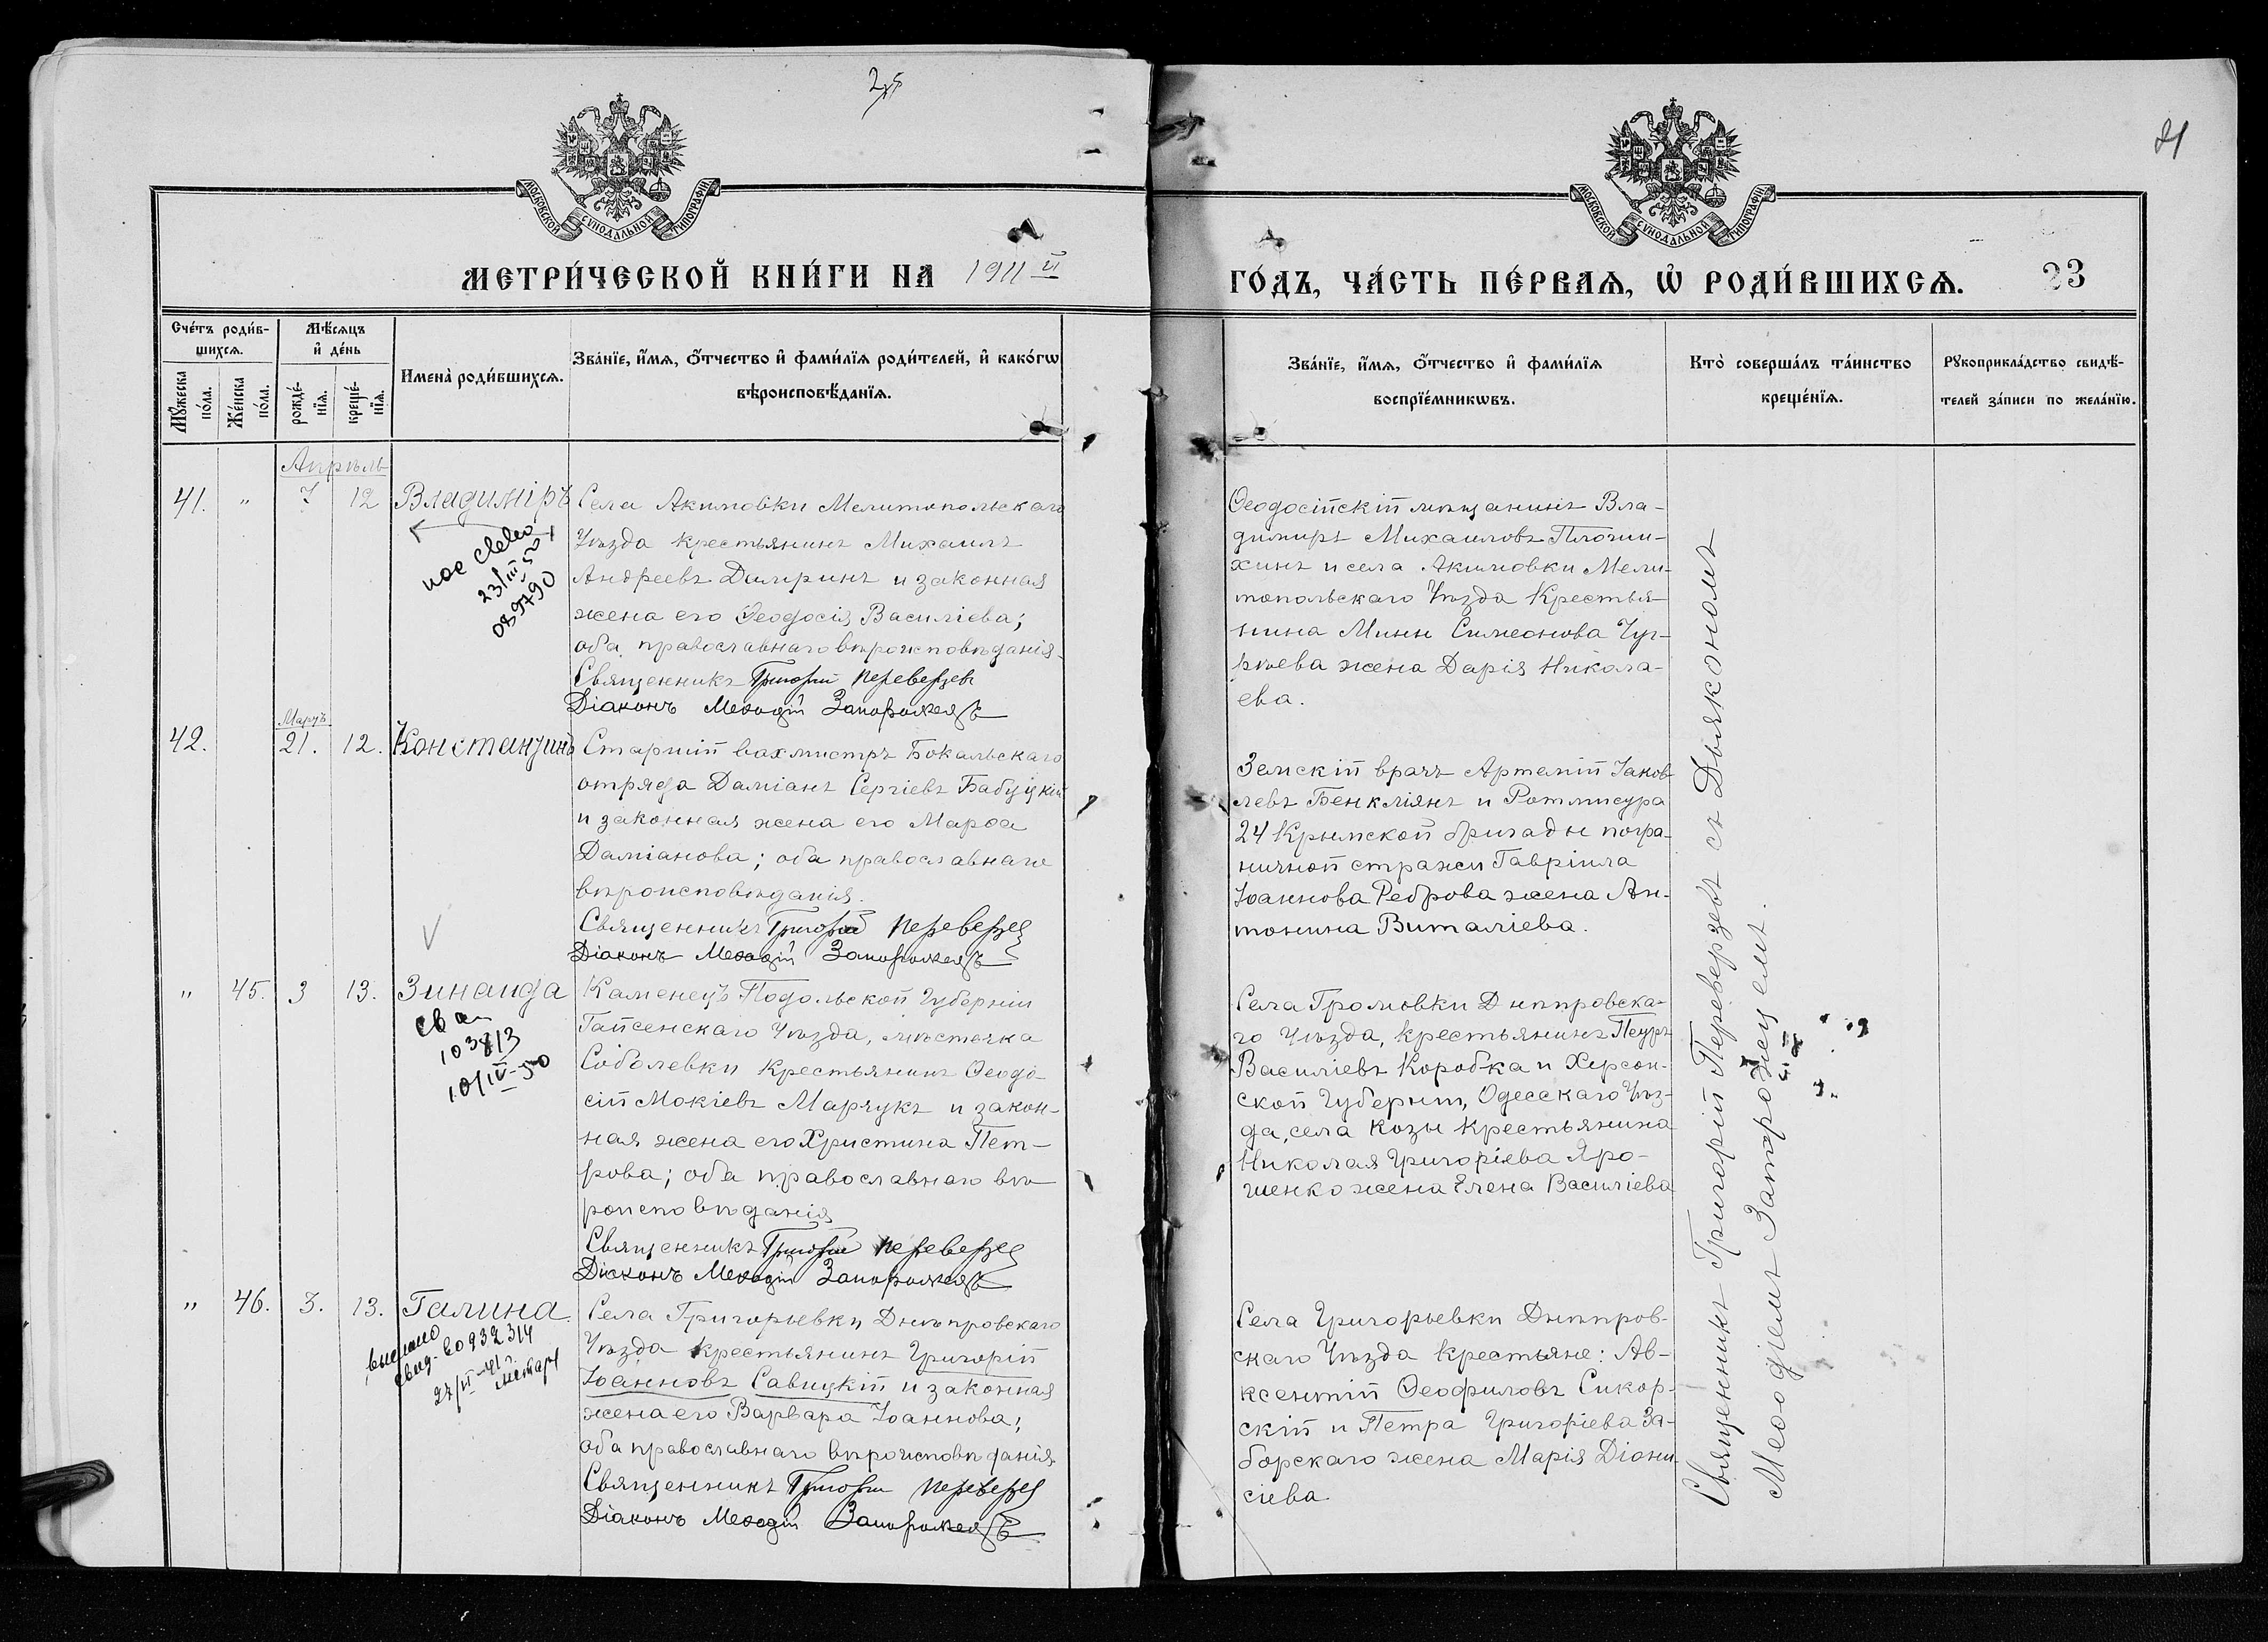 25
21
МОСКОВСКОЙ СѴНОДАЛЬНОЙ ТИПОГРАФІИ
МОСКОВСКОЙ СѴНОДАЛЬНОЙ ТИПОГРАФІИ
МЕТРИ́ЧЕСКОЙ КНИ́ГИ НА 1911 й
ГО́ДЪ, ЧА́СТЬ ПЕ́РВАѦ, Ѡ҆ РОДИ́ВШИХСѦ. 23
Сче́тъ роди́в-
шихсѧ.
Мꙋ́жеска
по́ла.
Же́нска
по́ла.
Мѣ́сѧцъ
и҆ де́нь
рожде́-
нїѧ.
креще́-
нїѧ.
Имена̀ роди́вшихсѧ.
Зва́нїе, и҆́мѧ, ѻ҆́тчество и҆ фами́лїѧ роди́телей, и҆ како́гѡ
вѣроисповѣ́данїѧ.
Зва́нїе, и҆́мѧ, ѻ҆́тчество и҆ фами́лїѧ
воспрїе́мникѡвъ.
Кто̀ соверша́лъ та́инство
креще́нїѧ.
Рꙋкоприкла́дство свидѣ́-
телей за́писи по жела́нїю.
Апрѣль
41. " 7 12 Владиміръ
23/III 52
089790
Села Акимовки Мелитопольскаго
Уѣзда крестьянинъ Михаилъ
Андреевъ Димринъ и законная
жена его Ѳеодосія Василіева;
оба православнаго вѣроисповѣданія
Священникъ Григорій Переверзевъ
Діаконъ Меѳодій Запорожецъ
Ѳеодосійскій мѣщанинъ Вла-
димиръ Михаиловъ Плотни-
хинъ и села Акимовки Мели-
топольскаго Уѣзда Крестья-
нина Минн Симеонова
жена Дарія Никола-
ева.
Мартъ
42. 21. 12. Константинъ
Старшій вахмистръ Бокальскаго
отряда Даміанъ Сергіевъ Бабуцкій
и законная жена его Марѳа
Даміанова; оба православнаго
вѣроисповѣданія.
Священникъ Григорій Переверзевъ
Діаконъ Меѳодій Запорожецъ
Земскій врачъ Артемій Іаков-
левъ Бенкліянъ и Ротмистра
24 Крымской бригады погра-
ничной стражи Гавріила
Іоаннова Реброва жена Ан-
тонина Виталіева.
" 45. 3 13. Зинаида
103813
10/IV-50
Каменецъ Подольской Губерніи
Гайсенскаго Уѣзда, мѣстечка
Соболевки Крестьянинъ Ѳеодо-
сій Мокіевъ Марчукъ и закон-
ная жена его Христина Пет-
рова; оба православнаго вѣ-
роисповѣданія
Священникъ Григорій Переверзевъ
Діаконъ Меѳодій Запорожецъ
Села Громовки Днѣпровска-
го Уѣзда, крестьянинъ Петръ
Василіевъ Коробка и Херсон-
ской Губерніи, Одесскаго Уѣз-
да, села Козы Крестьянина
Николая Григоріева Яро-
шенко жена Елена Василіева
" 46. 3. 13. Галина
выслано
свид. 60932314
27/VI-41 г.
Села Григорьевки Днѣпровскаго
Уѣзда крестьянинъ Григорій
Іоанновъ Савицкій и законная
жена его Варвара Іоаннова;
оба православнаго вѣроисповѣданія
Священникъ Григорій Переверзевъ
Діаконъ Меѳодій Запорожецъ
Села Григорьевки Днѣпров-
скаго Уѣзда Крестьяне: Ав-
ксентій Ѳеофиловъ Сикор-
скій и Петра Григоріева За-
борскаго жена Марія Діони-
сіева
Священникъ Григорій Переверзевъ съ Дьякономъ
Меѳодіемъ Запорожецемъ.